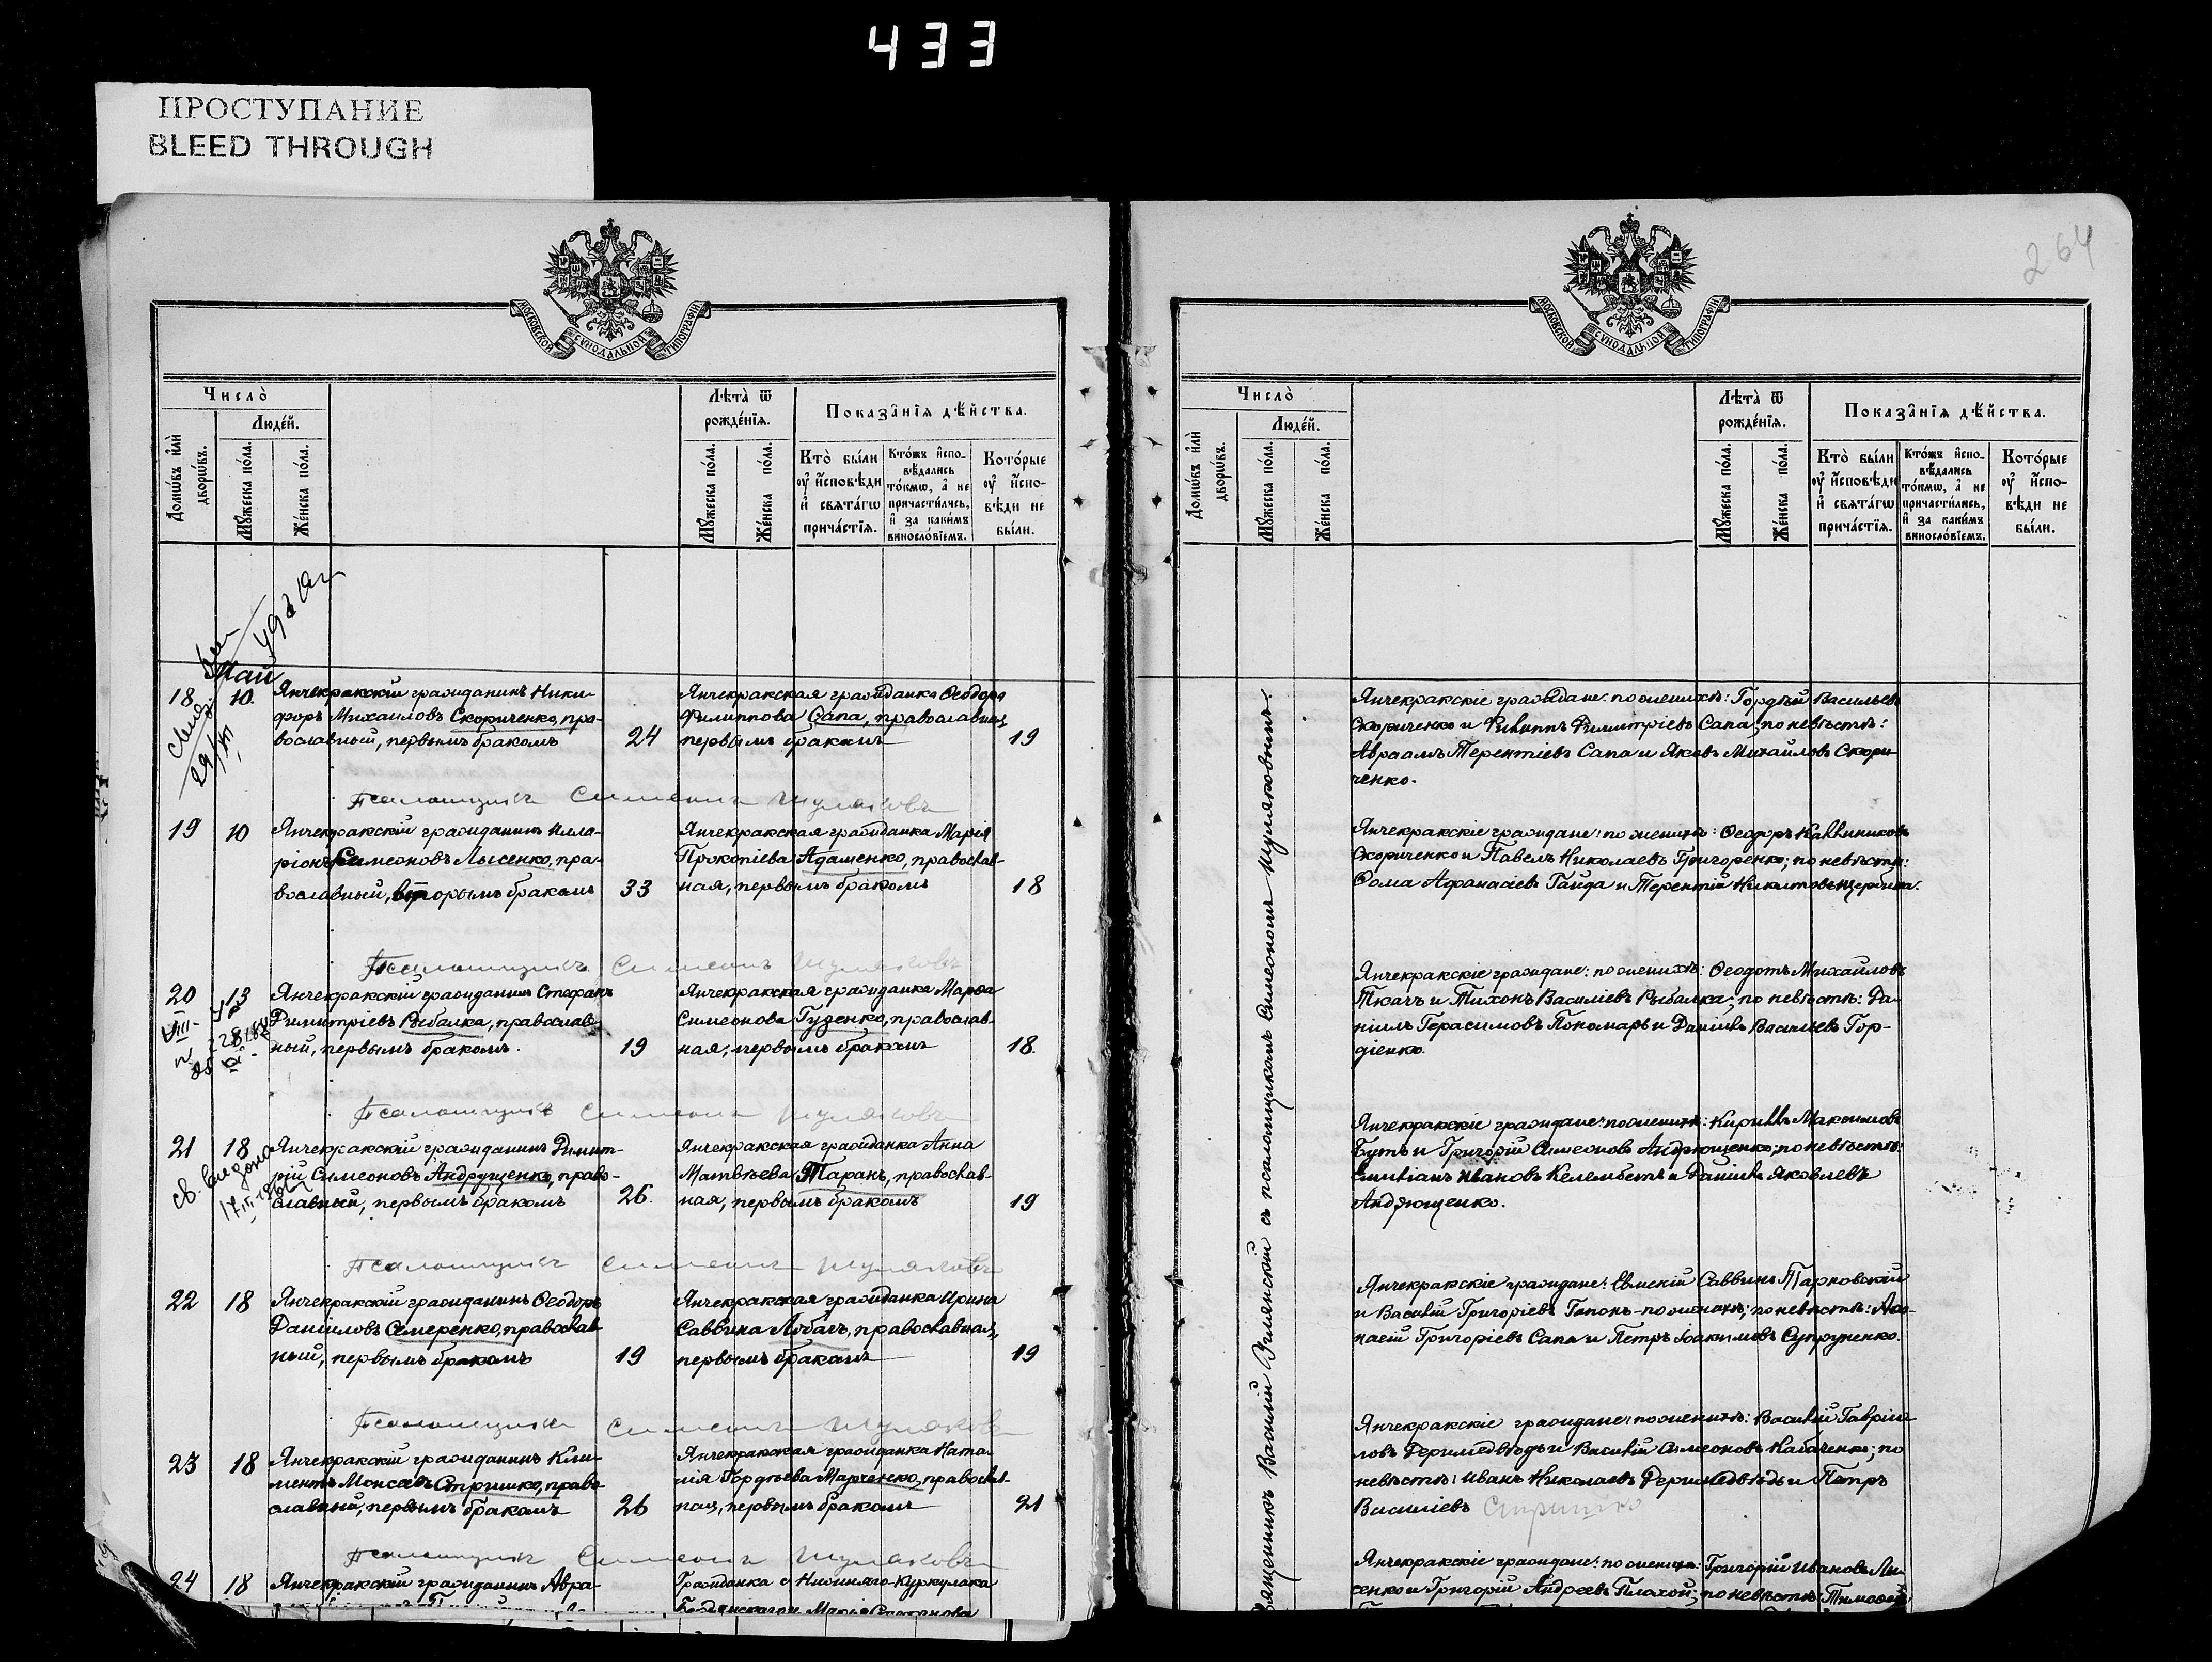 433
ПРОСТУПАНИЕ
BLEED THROUGH
МОСКОВСКОЙ СѴНОДАЛЬНОЙ ТИПОГРАФІИ
Число̀
Людей.
Домѡвъ и҆лѝ дворѡвъ.
Мꙋжеска пола.
Женска пола.
Лѣта̀ ѿ рожденїѧ.
Мꙋжеска пола.
Женска пола.
Показанїѧ дѣйства.
Кто̀ были ᲂу҆ и҆сповѣди и҆ свѧтагѡ причастїѧ.
Ктожъ и҆сповѣдались токмѡ, а҆ не причастились, и҆ за какимъ винословїемъ.
Которые ᲂу҆ и҆сповѣди не были.
Май
18 10. Янчекракскій гражданинъ Ники-
форъ Михаиловъ Скориченко, пра-
вославный, первымъ бракомъ 24
Янчекракская гражданка Ѳеодора
Филиппова Сапа, православная,
первымъ бракомъ 19
29/XII
Псаломщикъ Симеонъ Шуляковъ
19 10 Янчекракскій гражданинъ Илла-
ріонъ Симеоновъ Лысенко, пра-
вославный, вторымъ бракомъ 33
Янчекракская гражданка Марія
Прокопіева Адаменко, православ-
ная, первымъ бракомъ 18
Псаломщикъ Симеонъ Шуляковъ
20 13 Янчекракскій гражданинъ Стефанъ
Димитріевъ Рыбалка, православ-
ный, первымъ бракомъ. 19
Янчекракская гражданка Марѳа
Симеонова Гуденко, православ-
ная, первымъ бракомъ 18.
Псаломщикъ Симеонъ Шуляковъ
21 18 Янчекракскій гражданинъ Димит-
рій Симеоновъ Андрущенко, право-
славный, первымъ бракомъ 26.
Янчекракская гражданка Анна
Матвѣева Таранъ, православ-
ная, первымъ бракомъ 19
Псаломщикъ Симеонъ Шуляковъ
22 18 Янчекракскій гражданинъ Ѳеодоръ
Даніиловъ Семеренко, православ-
ный, первымъ бракомъ 19
Янчекракская гражданка Ирина
Саввина Лобачъ, православная,
первымъ бракомъ 19
Псаломщикъ Симеонъ Шуляковъ
23 18 Янчекракскій гражданинъ Кли-
ментъ Моисеевъ Стришко, право-
славный, первымъ бракомъ 26
Янчекракская гражданка Ната-
лія Гордѣева Марченко, православ-
ная, первымъ бракомъ 21
Псаломщикъ Симеонъ Шуляковъ
24 18 Янчекракскій гражданинъ Авра-
Гражданка с Нижняго-Куркулака
Марія Стефанова
264
МОСКОВСКОЙ СѴНОДАЛЬНОЙ ТИПОГРАФІИ
Число̀
Людей.
Домѡвъ и҆лѝ дворѡвъ.
Мꙋжеска пола.
Женска пола.
Лѣта̀ ѿ рожденїѧ.
Мꙋжеска пола.
Женска пола.
Показанїѧ дѣйства.
Кто̀ были ᲂу҆ и҆сповѣди и҆ свѧтагѡ причастїѧ.
Ктожъ и҆сповѣдались токмѡ, а҆ не причастились, и҆ за какимъ винословїемъ.
Которые ᲂу҆ и҆сповѣди не были.
Священникъ Василій съ псаломщикомъ Симеономъ Шуляковымъ.
Янчекракскіе граждане: по женихѣ: Гордѣй Васильевъ
Скориченко и Филиппъ Димитріевъ Сапа; по невѣстѣ:
Авраамъ Терентіевъ Сапа и Яковъ Михайловъ Скори-
ченко.
Янчекракскіе граждане: по женихѣ: Ѳеодоръ Каллиниковъ
Скориченко и Павелъ Николаевъ Григоренко; по невѣстѣ:
Ѳома Аѳанасіевъ Гайда и Терентій Никитовъ Щербина.
Янчекракскіе граждане: по женихѣ: Ѳеодотъ Михаиловъ
Ткачъ и Тихонъ Василіевъ Рыбалка; по невѣстѣ: Да-
ніилъ Герасимовъ Пономарь и Даніилъ Васильевъ Гор-
діенко.
Янчекракскіе граждане: по женихѣ: Кириллъ Максимовъ
Бутъ и Григорій Симеоновъ Андрющенко; по невѣстѣ:
Емиліанъ Ивановъ Келембетъ и Даніилъ Яковлевъ
Андрющенко.
Янчекракскіе граждане: Евмений Саввинъ Тарновскій
и Василій Григоріевъ Гапонъ - по женихѣ; по невѣстѣ: Аѳа-
насій Григоріевъ Сапа и Петръ Іоакимовъ Супруненко.
Янчекракскіе граждане: по женихѣ: Василій Гавріи-
ловъ Деримедвѣдь и Василій Симеоновъ Кабаченко; по
невѣстѣ: Иванъ Николаевъ Деримедвѣдь и Петръ
Василіевъ Стришко
Янчекракскіе граждане: по женихѣ: Григорій Ивановъ Лы-
сенко и Григорій Андреевъ Плахой; по невѣстѣ: Тимоѳей